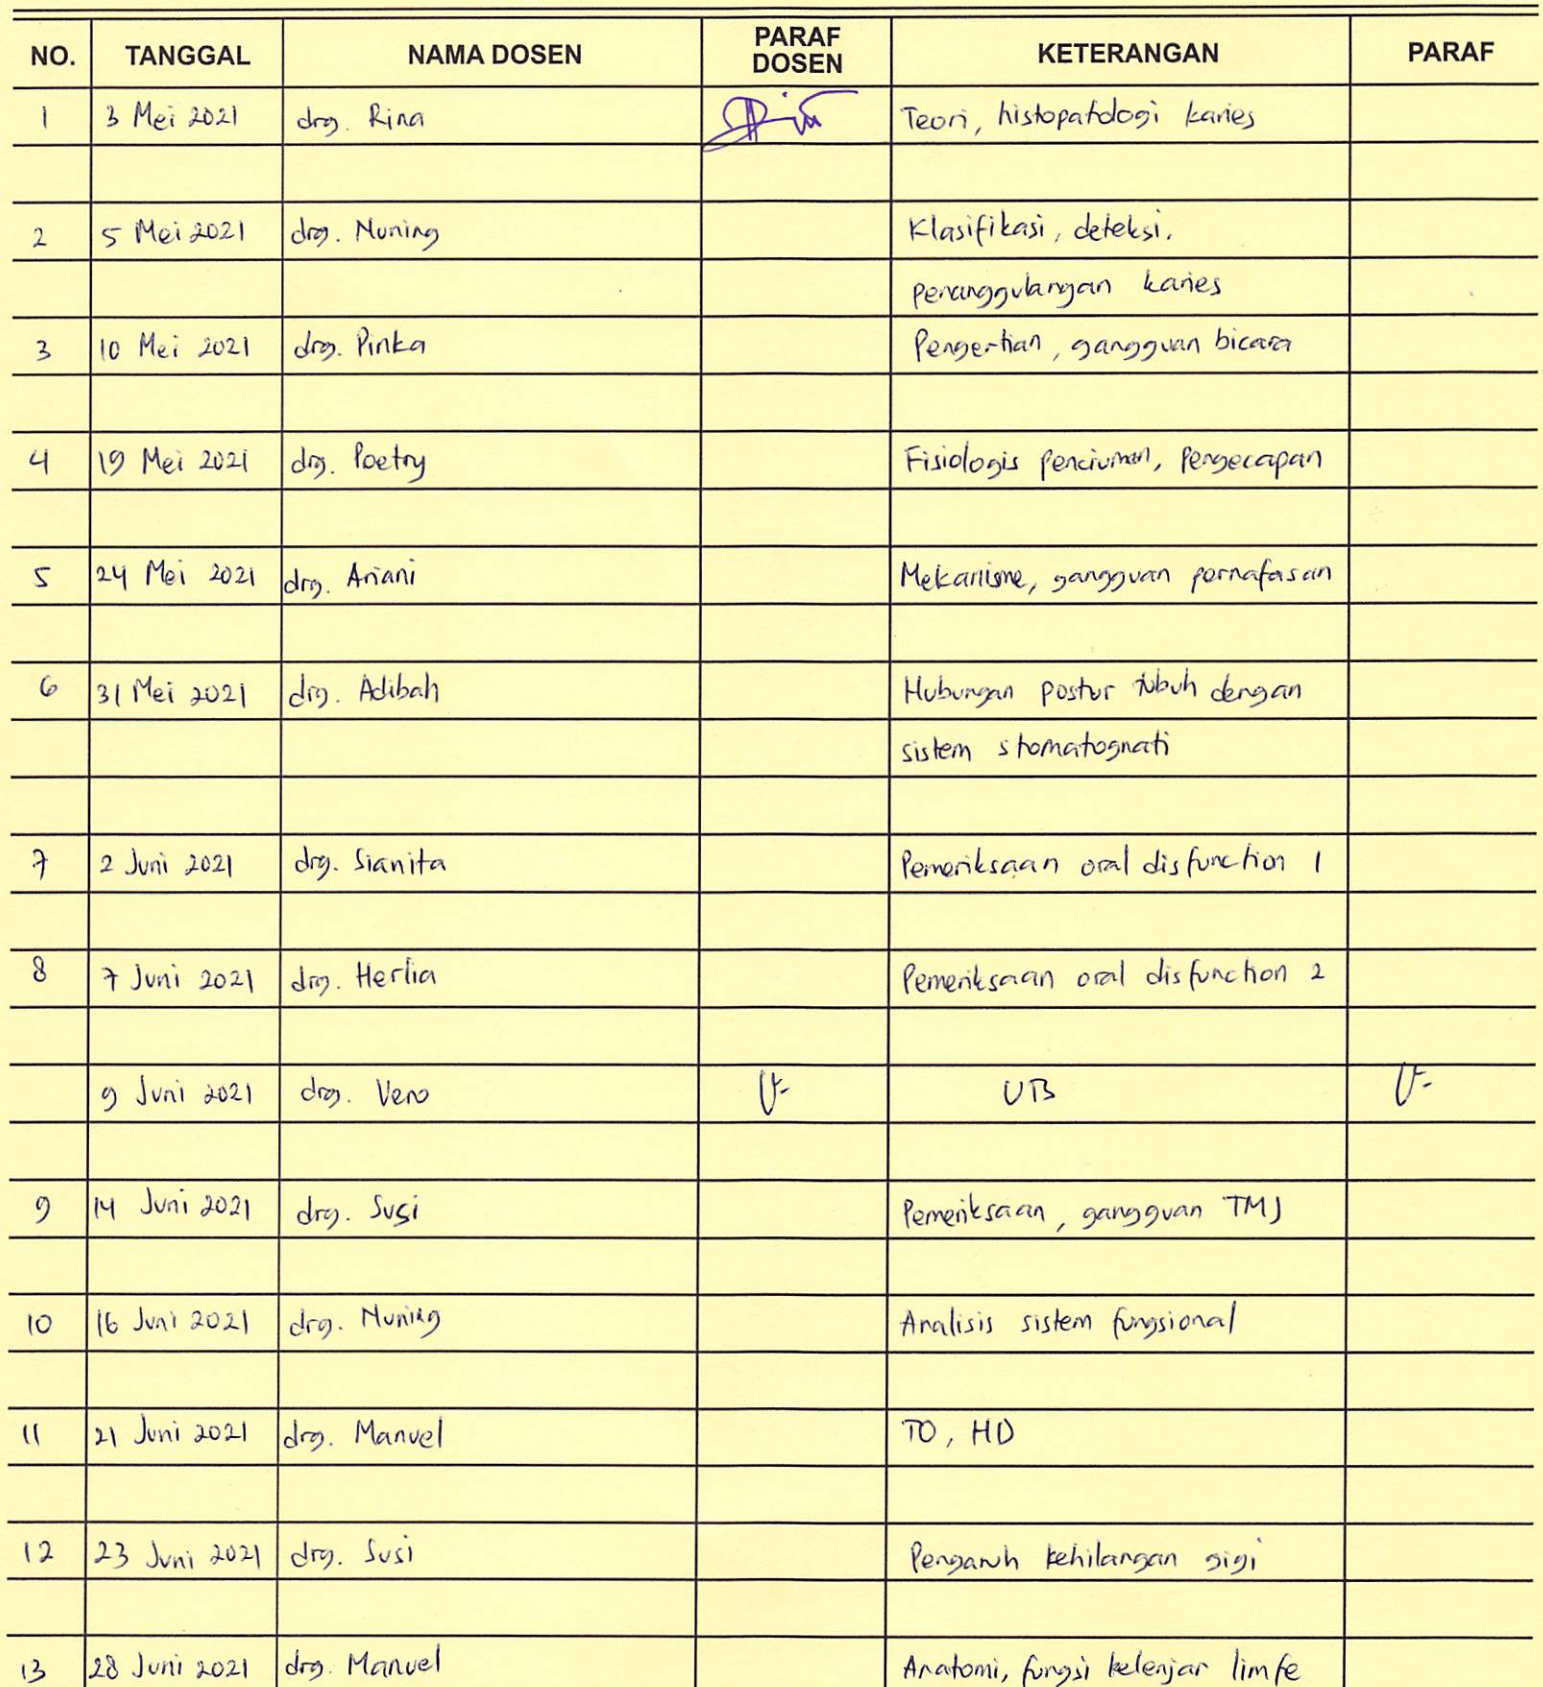 NO. TANGGAL NAMA DOSEN PARAF DOSEN KETERANGAN PARAF
1 3 Mei 2021 drg. Rina Teori, histopatologi karies
2 5 Mei 2021 drg. Nuning Klasifikasi, deteksi,
penanggulangan karies
3 10 Mei 2021 drg. Pinka Pengertian, gangguan bicara
4 19 Mei 2021 drg. Poetry Fisiologis penciuman, Pengecapan
5 24 Mei 2021 drg. Ariani Mekanisme, gangguan pernafasan
6 31 Mei 2021 drg. Adibah Hubungan postur tubuh dengan
sistem stomatognati
7 2 Juni 2021 drg. Sianita Pemeriksaan oral disfunction 1
8 7 Juni 2021 drg. Herlia Pemeriksaan oral disfunction 2
9 Juni 2021 drg. Vero UTB
9 14 Juni 2021 drg. Susi Pemeriksaan, gangguan TMJ
10 16 Juni 2021 drg. Nuning Analisis sistem fungsional
11 21 Juni 2021 drg. Manuel TO, HD
12 23 Juni 2021 drg. Susi Pengaruh kehilangan gigi
13 28 Juni 2021 drg. Manuel Anatomi, fungsi kelenjar limfe